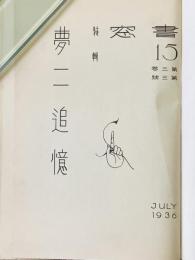 書窓
15
第三卷
第三號
特輯
夢二追憶
JULY
1936